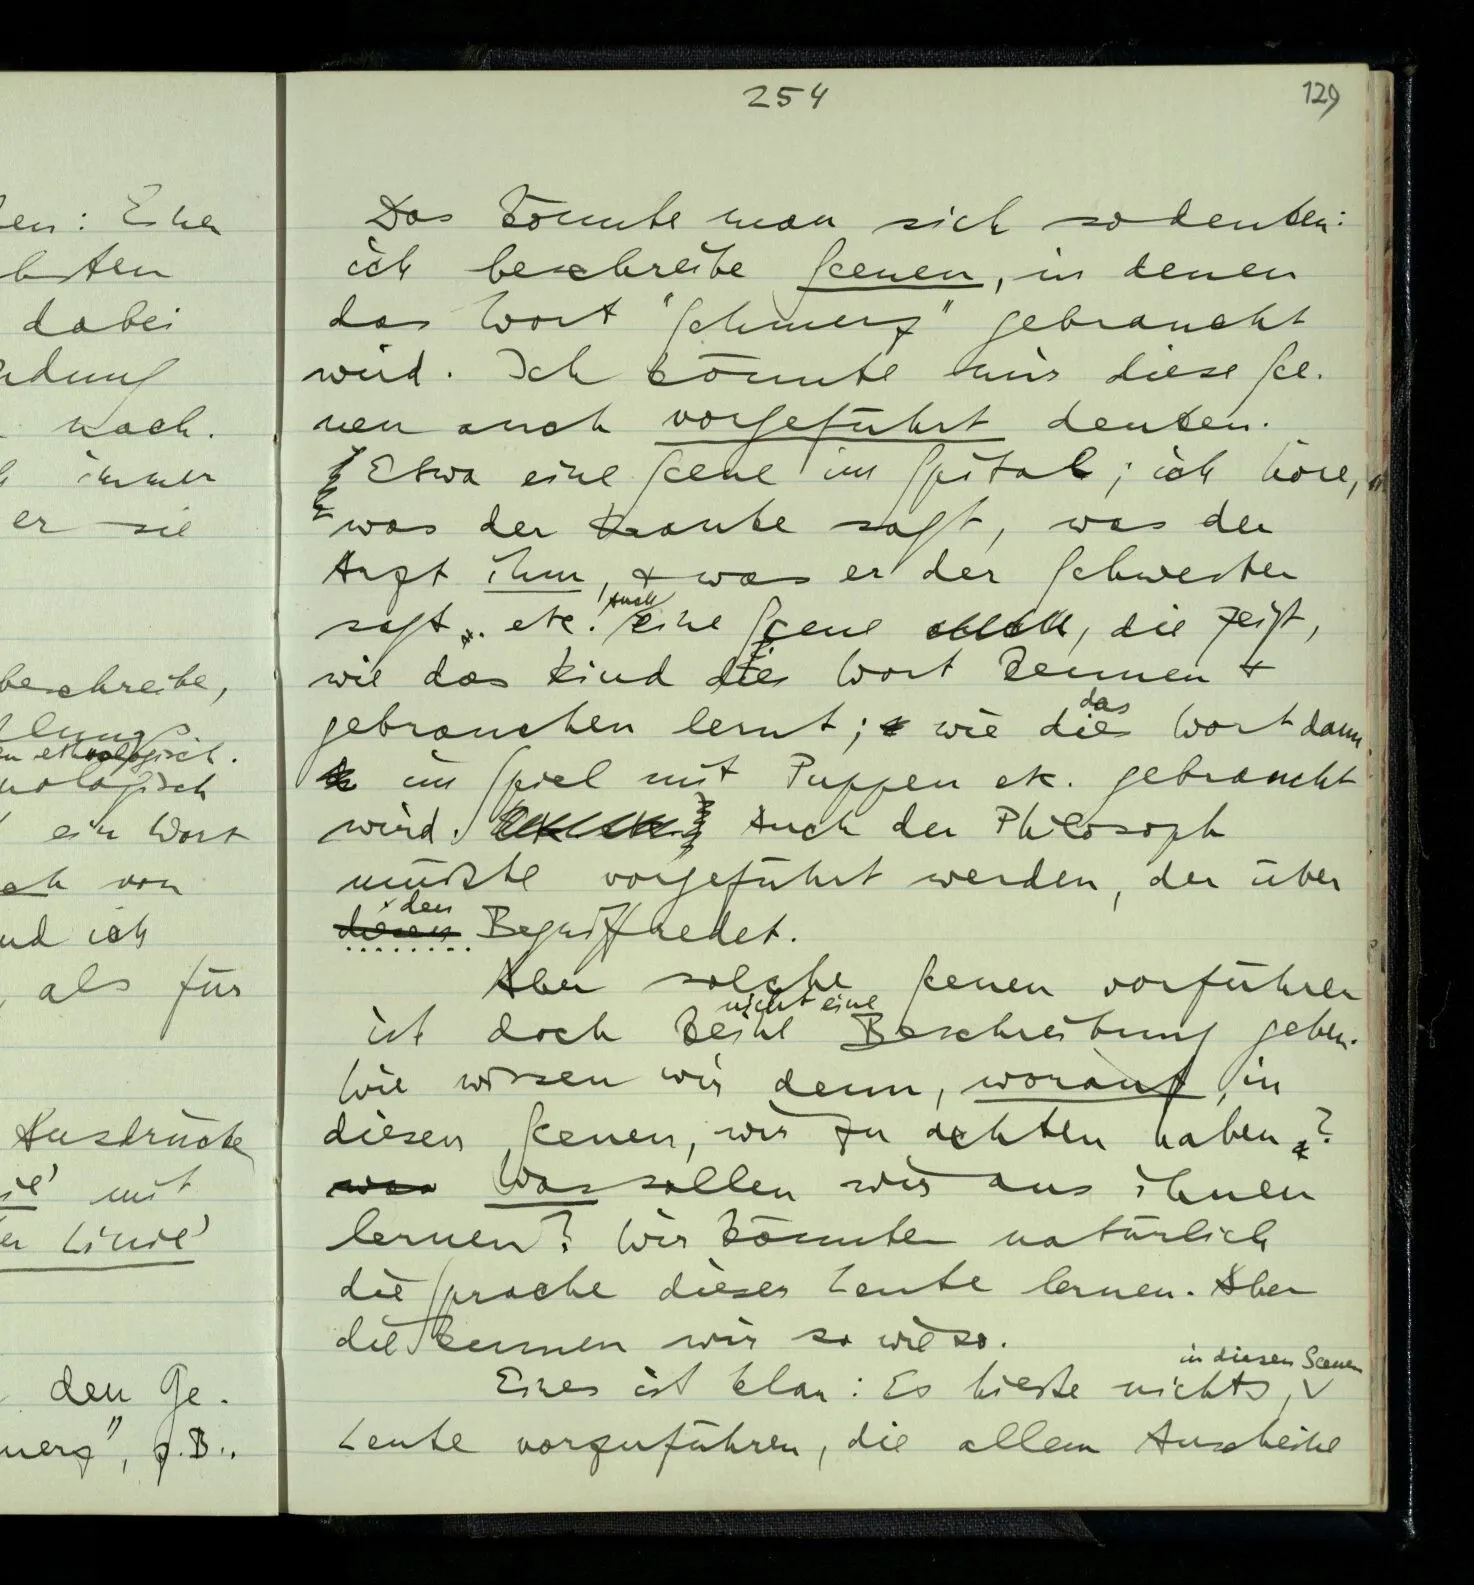 en: Einer
bsten
dabei
ndung
nach.
immer
er sie
beschreibe,
en ethnologisch.
nologisch
ein Wort
ach von
und ich
, als für
Ausdrücke
ie' mit
er Linie'
den Ge-
merz", z.B.,
254
129
Das könnte man sich so denken:
ich beschreibe Scenen, in denen
das Wort "Schmerz" gebraucht
wird. Ich könnte mir diese Sce-
nen auch vorgeführt denken.
Etwa eine Scene im Spital; ich höre,
was der Kranke sagt, was der
Arzt ihm, & was er der Schwester
auch
sagt, etc. eine Scene, die zeigt,
wie das Kind dies Wort kennen &
das
gebrauchen lernt; wie dies Wort dann
im Spiel mit Puppen etc. gebraucht
wird. Auch der Philosoph
müßte vorgeführt werden, der über
den
diesen Begriff redet.
Aber solche Scenen vorführen
nicht eine
ist doch keine Beschreibung geben.
Wie wissen wir denn, worauf, in
diesen Scenen, wir zu achten haben?
was Was sollen wir aus ihnen
lernen? Wir könnten natürlich
die Sprache dieser Leute lernen. Aber
die kennen wir so wie so.
in diesen Scenen
Eines ist klar: Es hieße nichts,
Leute vorzuführen, die allem Anscheine